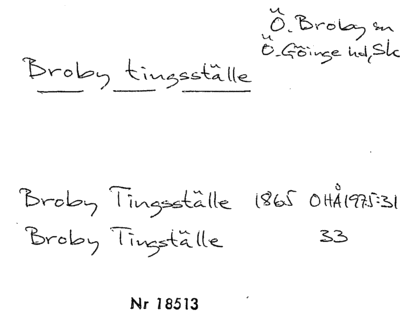 Ö. Broby sn
Ö. Göinge hd, Sk
Broby tingsställe
Broby Tingsställe 1865 OHÅ 1975:31
Broby Tingställe 33
Nr 18513